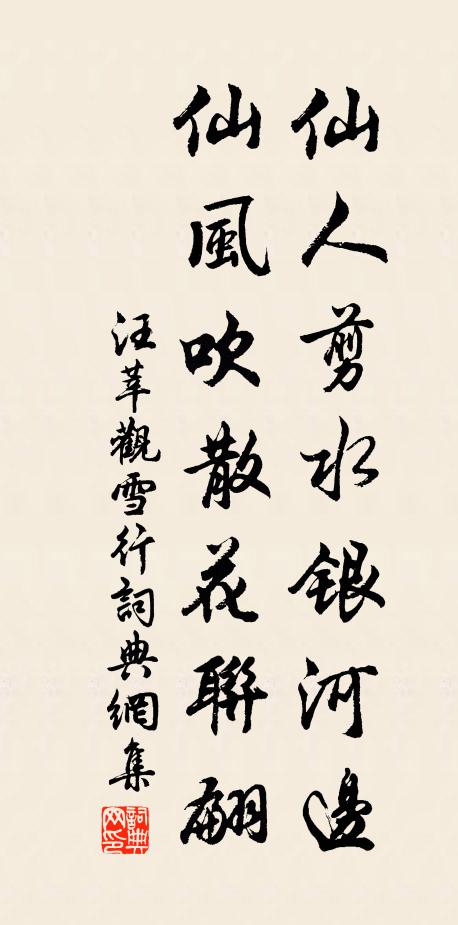 仙人剪水銀河邊
仙風吹散花聯翩
汪莘觀雪行詞典網集
詞典網印